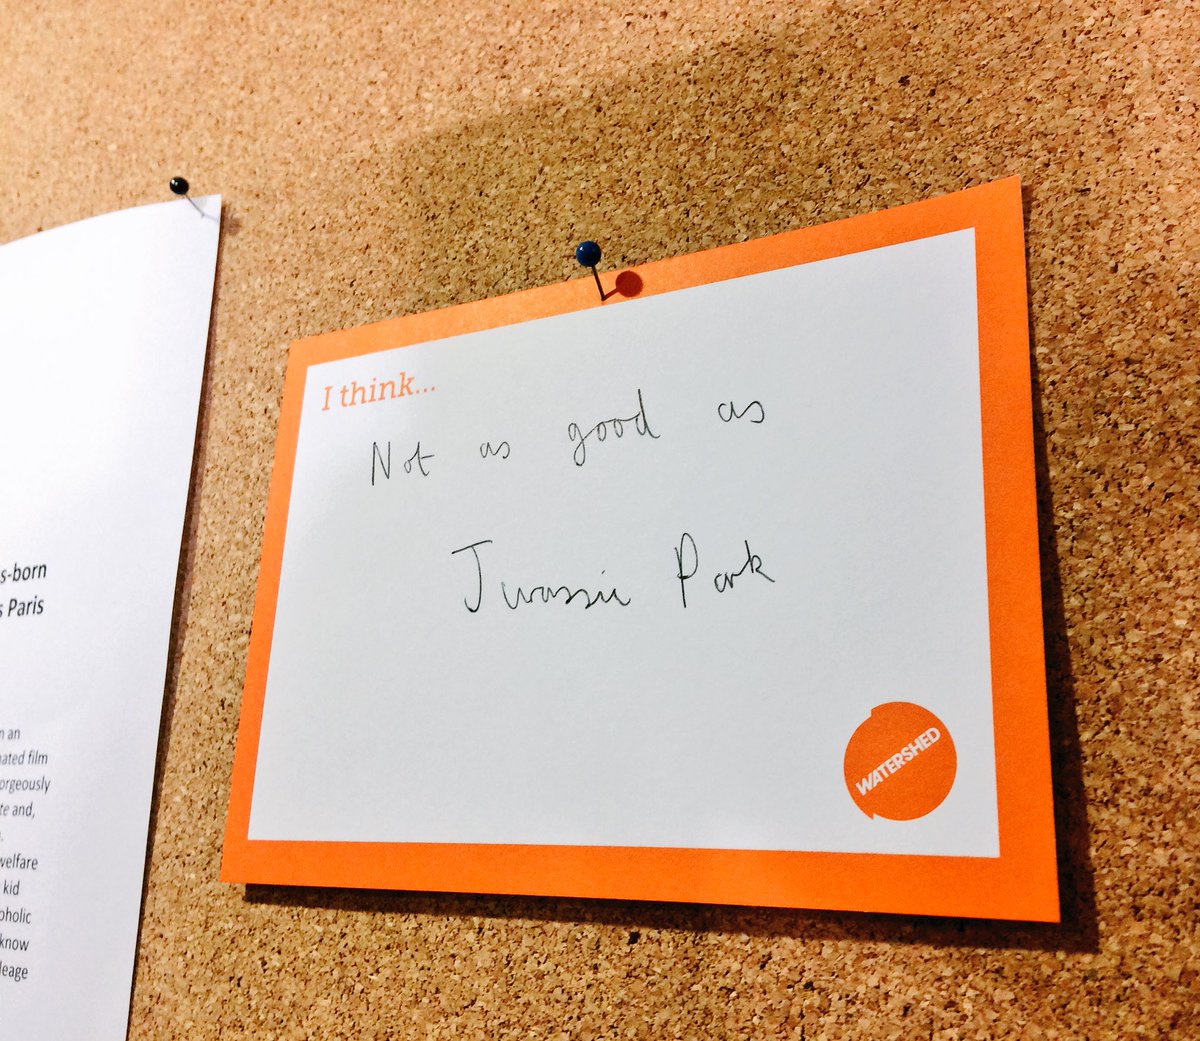 s-born
s Paris
n an
nated film
orgeously
te and,
welfare
kid
oholic
know
leage
I think...
Not as good as
Jurassic Park
WATERSHED